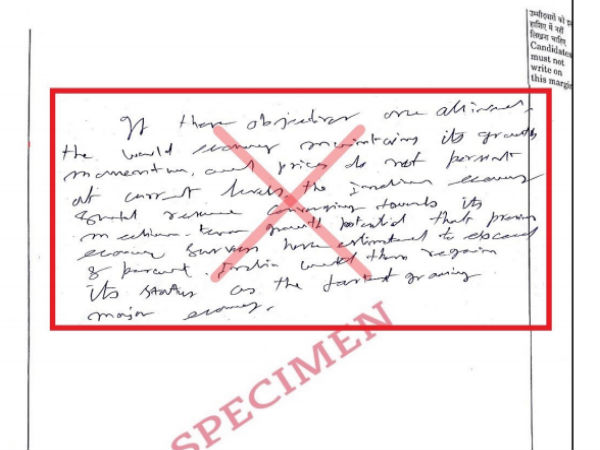 उम्मीदवारों को इस
हाशिए में नहीं
लिखना चाहिए
Candidates
must not
write on
this margin
If these objectives are achieved,
the world economy maintains its growth
momentum, and prices do not persist
at current levels, the Indian economy
should resume converging towards its
medium-term growth potential that previous
economic surveys have estimated to exceed
8 percent. India would then regain
its status as the fastest growing
major economy.
SPECIMEN